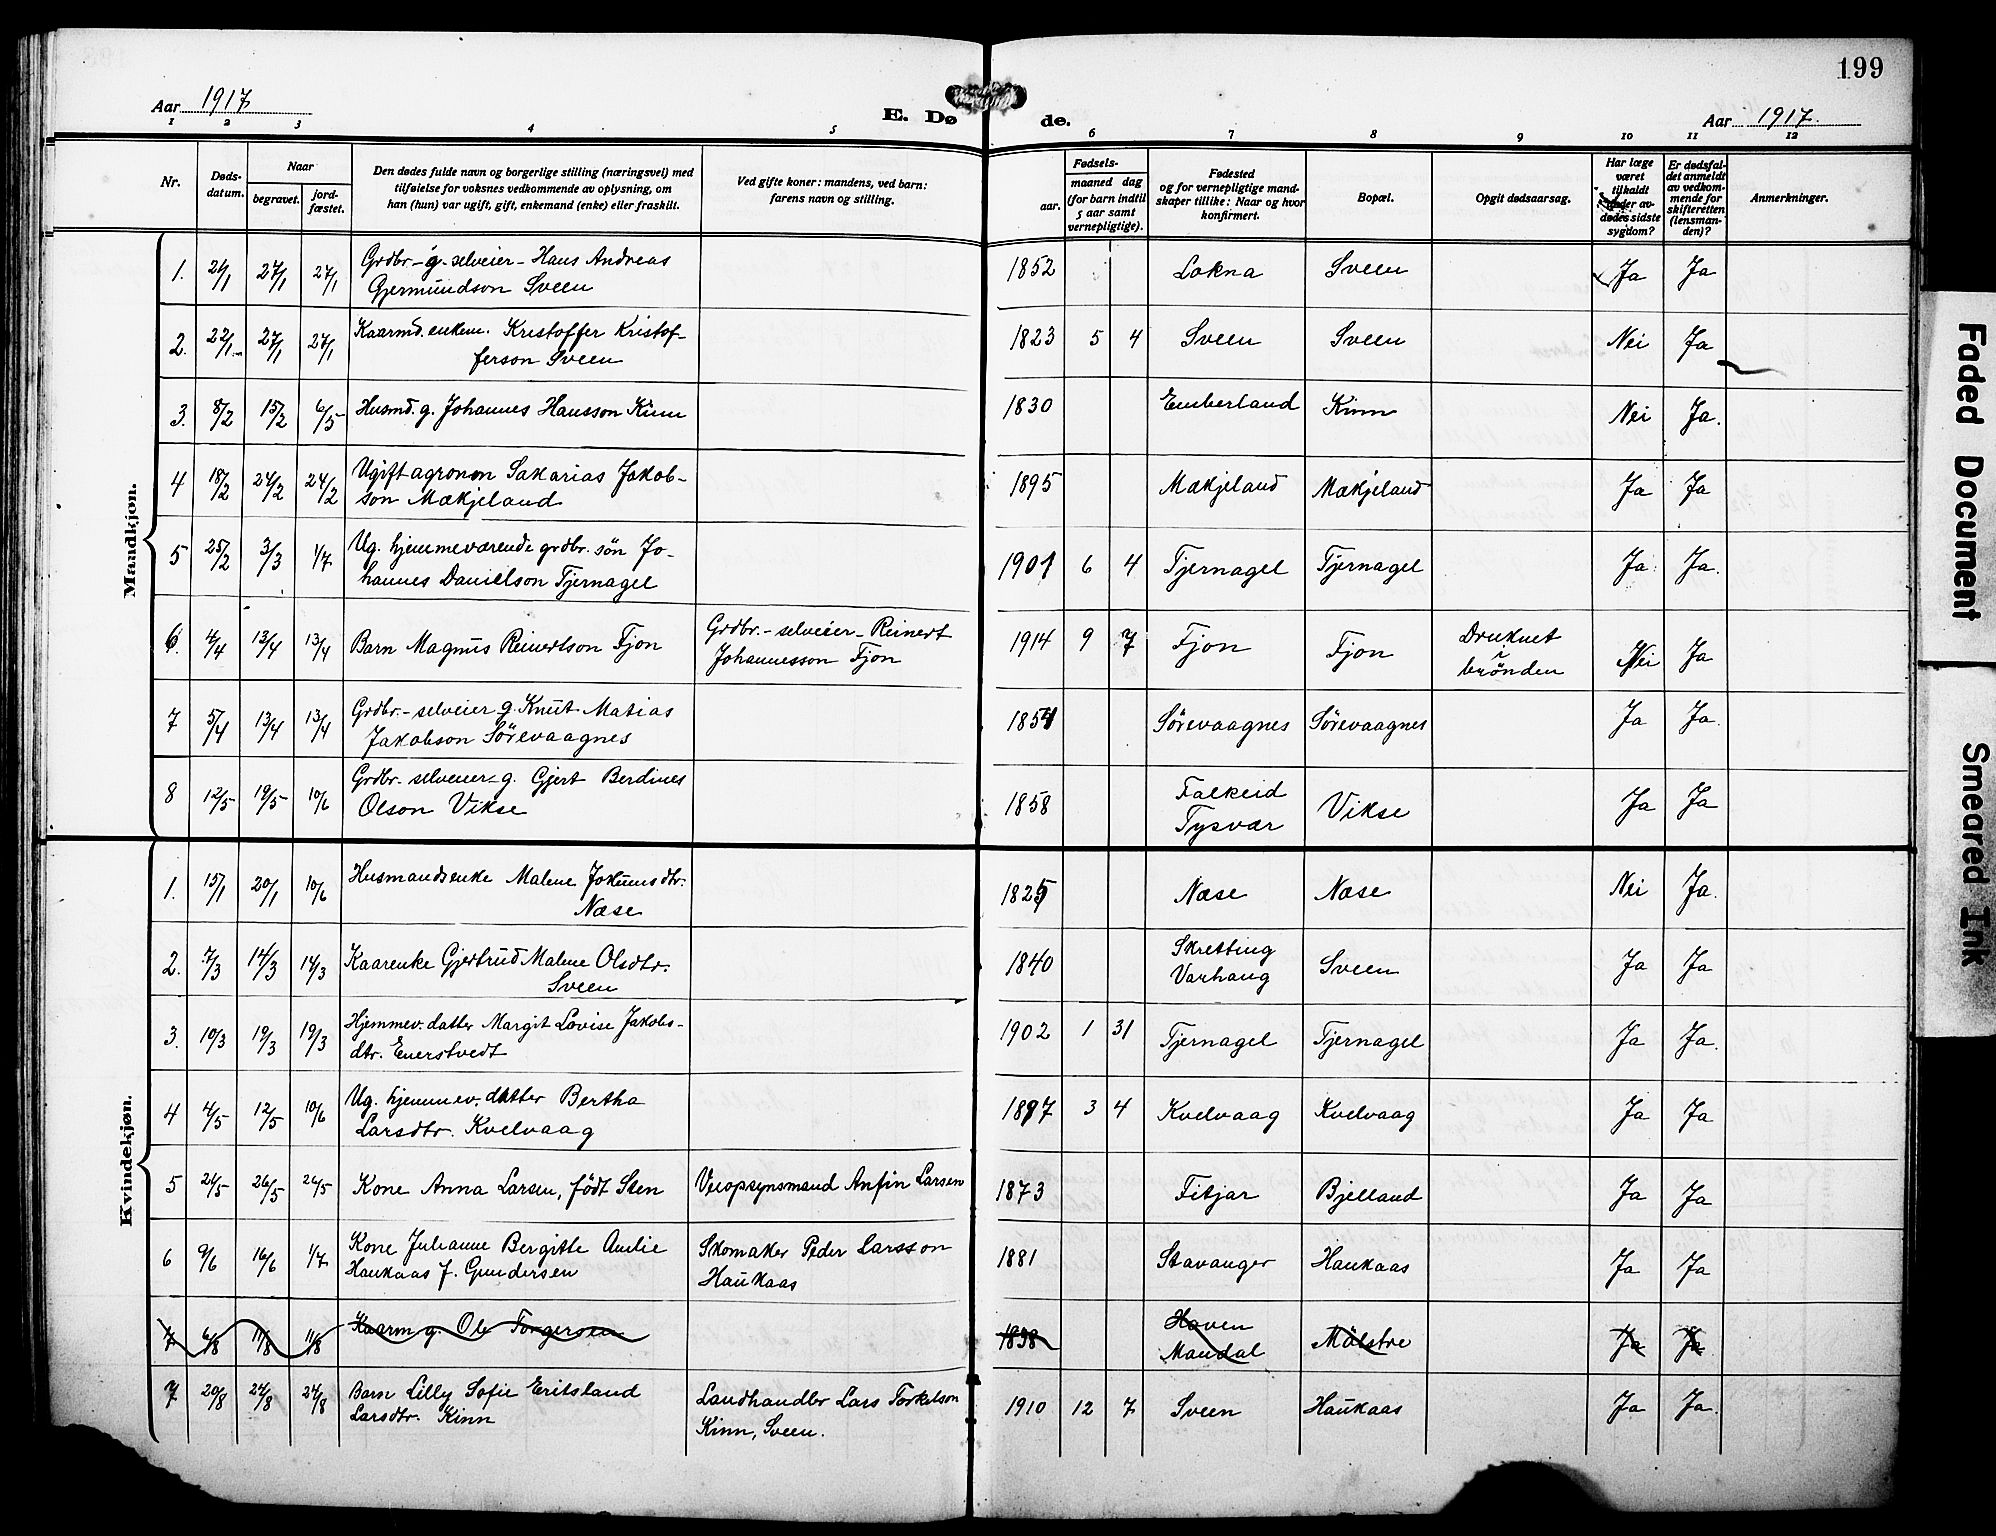 199
Aar 1917
E. Dø
de.
Aar 1917.
1 2 3 4 5 6 7 8 9 10 11 12
Nr.
Døds-
datum.
Naar
begravet.
jord-
fæstet.
Den dødes fulde navn og borgerlige stilling (næringsvei) med
tilføielse for voksnes vedkommende av oplysning, om
han (hun) var ugift, gift, enkemand (enke) eller fraskilt.
Ved gifte koner: mandens, ved barn:
farens navn og stilling.
Fødsels-
aar.
maaned dag
(for barn indtil
5 aar samt
vernepligtige).
Fødested
og for vernepligtige mand-
skaper tillike: Naar og hvor
konfirmert.
Bopæl.
Opgit dødsaarsag.
Har læge
været
tilkaldt
under av-
dødes sidste
sygdom?
Er dødsfal-
det anmeldt
av vedkom-
mende for
skifteretten
(lensman-
den)?
Anmerkninger.
Mandkjøn.
1. 21/1 27/1 27/1 Grdbr-g. selveier- Hans Andreas
Gjermundson Sveen
1852 Lokna Sveen Ja Ja
2. 22/1 27/1 27/1 Kaarmd. enkem. Kristoffer Kristof-
ferson Sveen
1823 5 4 Sveen Sveen Nei Ja
3. 8/2 15/2 6/5 Husmd. g. Johannes Hansson Kinn
1830 Emberland Kinn Nei Ja.
4 18/2 24/2 24/2 Ugift agronon Sakarias Jakob-
son Mækjeland
1895 Mækjeland Mækjeland Ja Ja
5 25/2 3/3 1/7 Ug. hjemmeværende grdbr. søn Jo-
hannes Danielson Tjernagel
1901 6 4 Tjernagel Tjernagel Ja Ja.
6. 4/4 13/4 13/4 Barn Magnus Reinertson Fjon
Grdbr.- selveier- Reinert
Johannesson Fjon
1914 9 7 Fjon Fjon
Druknet
i
brønden
Nei Ja
7 5/4 13/4 13/4 Grdbr.- selveier g. Knut Matias
Jakobson Sørevaagnes
1854 Sørevaagnes Sørevaagnes Ja Ja.
8 12/5 19/5 10/6 Grdbr. selveier-g. Gjert Berdines
Olson Vikse
1858 Falkeid
Tysvær
Vikse Ja Ja
Kvindekjøn.
1. 15/1 20/1 10/6 Husmandsenke Malene Jokumsdtr.
Næse
1825 Næse Næse Nei Ja.
2. 7/3 14/3 14/3 Kaarenke Gjertrud Malene Olsdtr.
Sveen
1840 Skretting
Varhaug
Sveen Ja Ja
3. 10/3 19/3 19/3 Hjemmev. datter Margit Lovise Jakobs-
dtr. Enerstvedt
1902 1 31 Tjernagel Tjernagel Ja Ja.
4 4/5 12/5 10/6 Ug. hjemmev. datter Bertha
Larsdtr. Kvelvaag
1897 3 4 Kvelvaag Kvelvaag Ja Ja
5 21/5 26/5 26/5 Kone Anna Larsen, født Sten
Veiopsynsmand Anfin Larsen
1873 Fitjar Bjelland Ja Ja
6 9/6 16/6 1/7 Kone Julianne Bergitte Amlie
Haukaas f. Gundersen
Skomaker Peder Larsson
Haukaas
1881 Stavanger Haukaas Ja Ja
7 6/8 11/8 11/8 Kaarm g. Ole Torgersen
1838 Hoven
Mandal
Mølstre Ja Ja
7 20/8 24/8 24/8 Barn Lilly Sofie Eritsland
Larsdtr. Kinn
Landhandler Lars Torkelson
Kinn, Sveen.
1910 12 7 Sveen Haukaas Ja Ja.
Faded Document
Smeared Ink